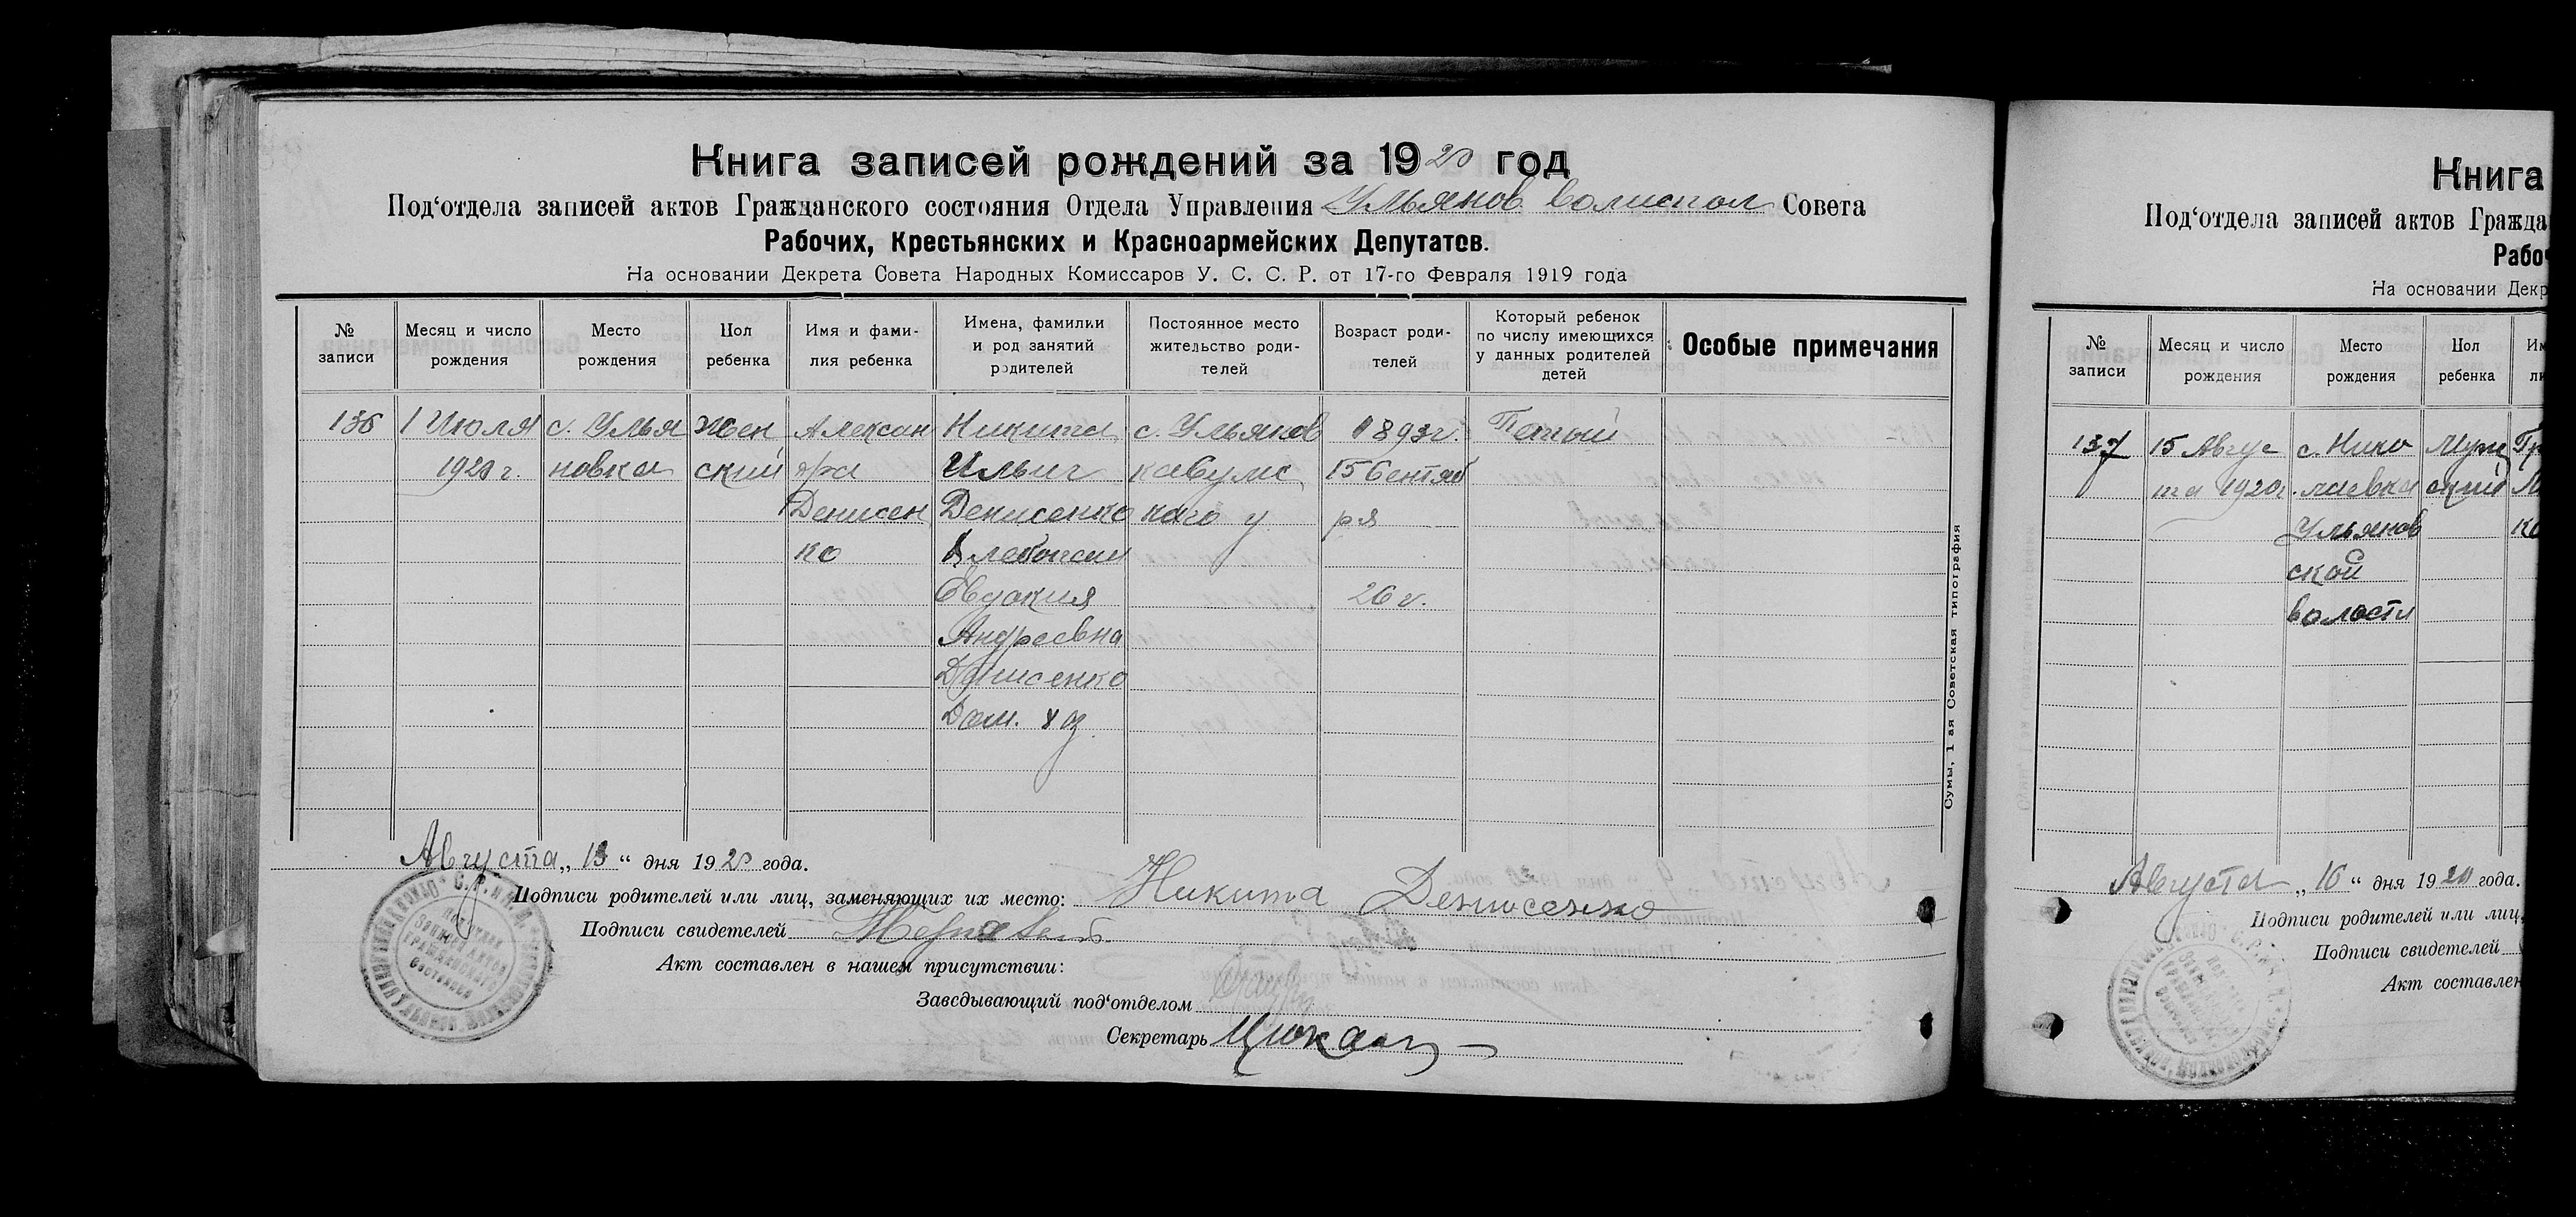 Книга записей рождений за 1920 год
Под‘отдела записей актов Гражданского состояния Отдела Управления Ульянов волиспол Совета
Рабочих, Крестьянских и Красноармейских Депутатов.
На основании Декрета Совета Народных Комиссаров У. С. С. Р. от 17-го Февраля 1919 года
№ записи
Месяц и число рождения
Место рождения
Пол ребенка
Имя и фамилия ребенка
Имена, фамилки и род занятий родителей
Постоянное место жительство родителей
Возраст родителей
Который ребенок по числу имеющихся у данных родителей детей
Особые примечания
136
1 Июля
1920 г.
с. Улья
новка
Жен
ский
Алексан
дра
Денисен
ко
Никита
Ильич
Денисенко
Хлебопаш
Евдокия
Андреевна
Денисенко
Дом. хоз.
с. Ульянов
ка Сумс
кого у
1893 г.
15 Сентяб
ря
26 г.
Пятый
Сумы, 1 ая Советская типография
Августа „ 13 “ дня 1920 года.
Подписи родителей или лиц, заменяющих их место: Никита Денисенко
Подписи свидетелей
Акт составлен в нашем присутствии:
Заведывающий под‘отделом
Секретарь
Книга
Под‘отдела записей актов Гражда
Рабоч
На основании Декр
№ записи
Месяц и число рождения
Место рождения
Пол ребенка
137
15 Авгус
та 1920г
с. Нико
лаевка
Ульянов
ской
волости
Муж
ской
Августа „ 16 “ дня 1920 года.
Подписи родителей или лиц,
Подписи свидетелей
Акт составлен